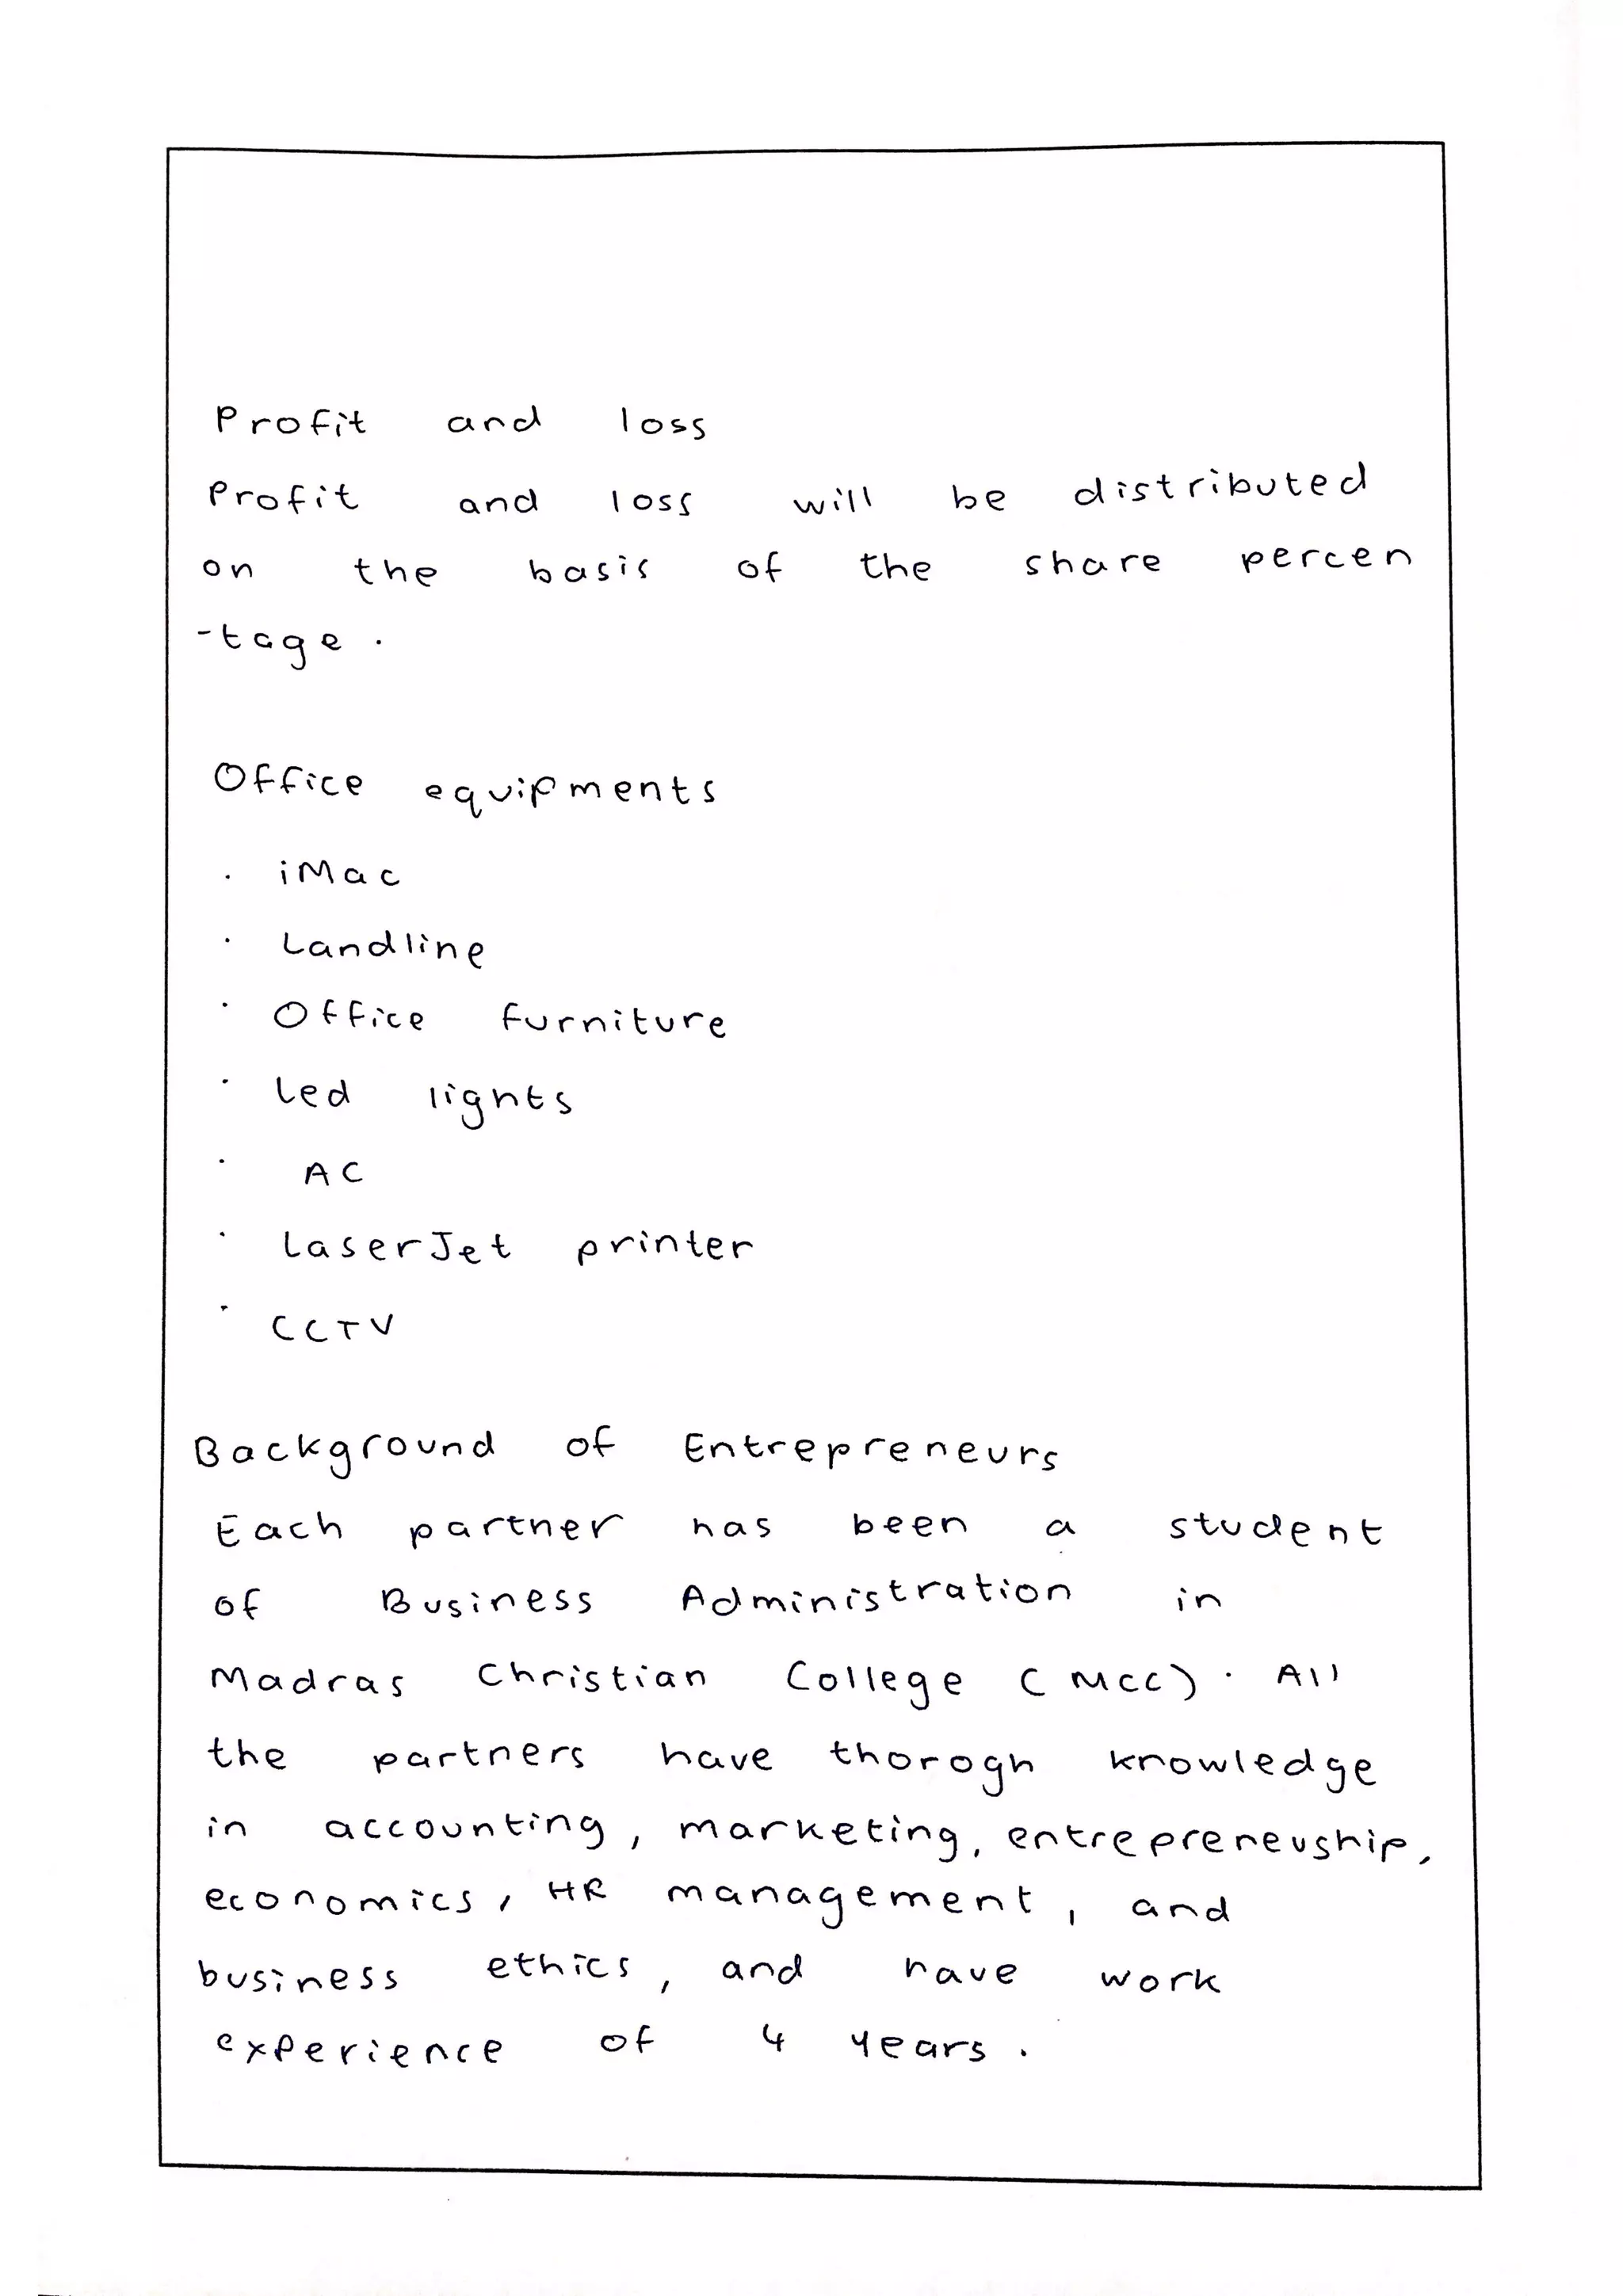 Profit and loss
Profit and loss will be distributed
on the basis of the share percen
-tage.
Office equipments
· iMac
· Landline
· Office furniture
· Led lights
· AC
· LaserJet printer
· CCTV
Background of Entrepreneurs
Each partner has been a student
of Business Administration in
Madras Christian College (MCC). All
the partners have thorogh knowledge
in accounting, marketing, entrepreneuship,
economics, HR management, and
business ethics, and have work
experience of 4 years.